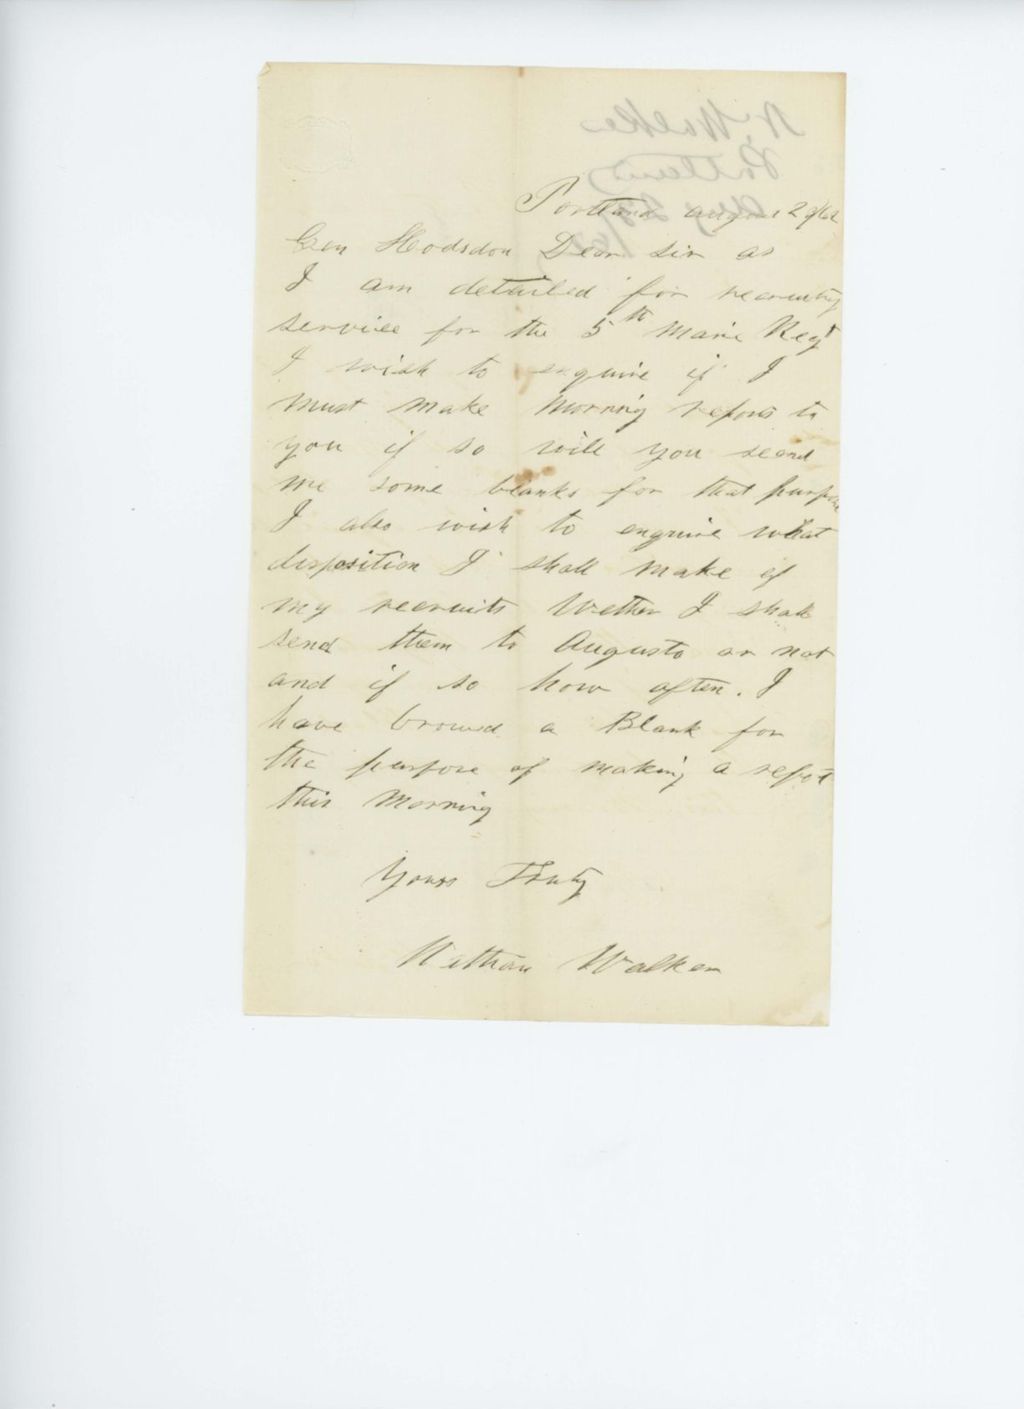 N. Walker
Portland
Aug 29
/62
Portland august 29/62
Gen Hodsdon Dear sir as
I am detailed for recruiting
service for the 5th Maine Regt
I wish to enquire if I
must make Morning repors to
you if so will you seend
me some blanks for that purpose
I also wish to enquire what
disposition I shall make of
my recruits Wether I shall
send them to Augusta or not
and if so how often. I
have browed a Blank for
the purpose of making a repot
this Morning
Yours Truly
Nathan Walker